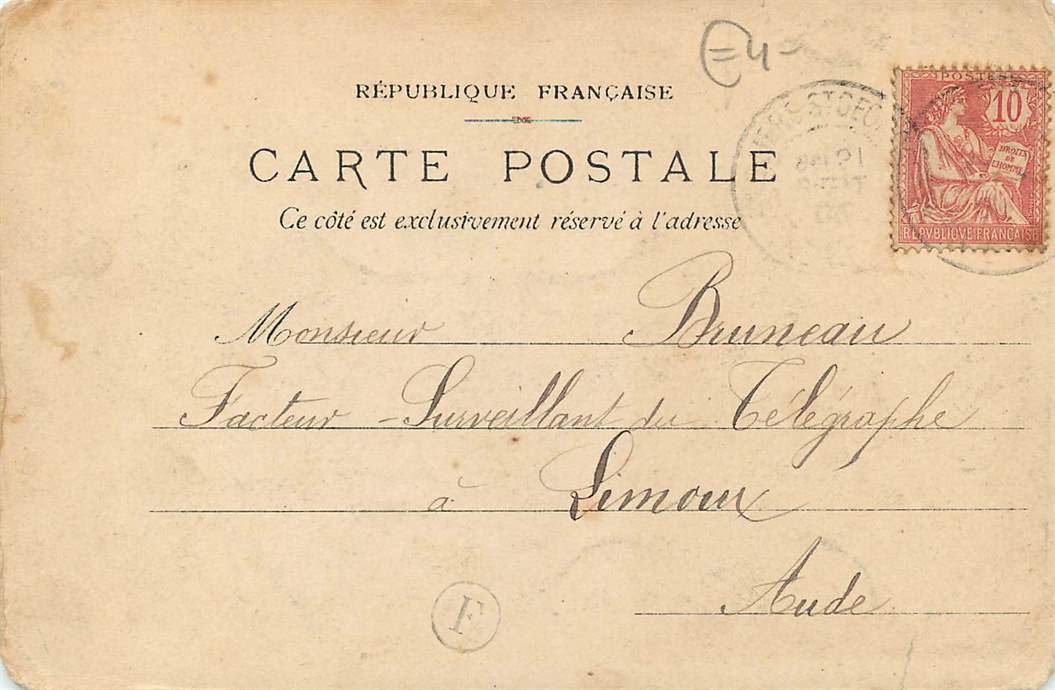 E4-
RÉPUBLIQUE FRANÇAISE
CARTE POSTALE
Ce côté est exclusivement réservé à l'adresse
POSTES
10
DROITS
DE
L'HOMME
REPVBLIQVE FRANÇAISE
21
SEPT
Monsieur Bruneau
Facteur - Surveillant du Télégraphe
à Limoux
Aude
F